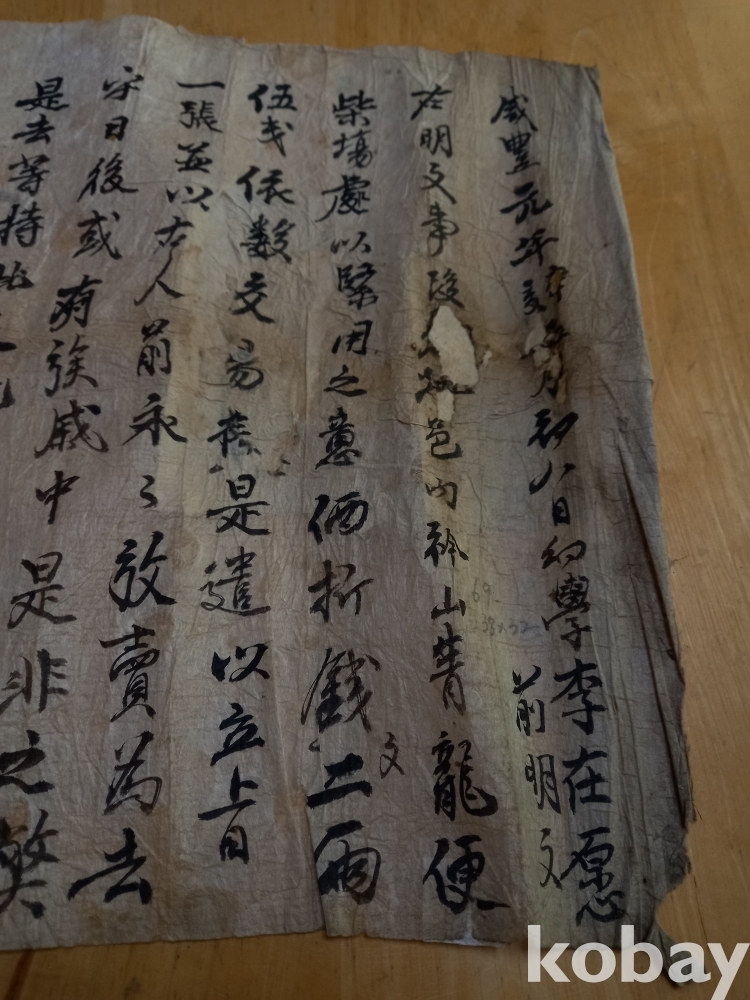 咸豊元年辛亥 月初八日幼學李在愿
前明文
右明文事段 邑內 山青龍便
柴場處以緊用之意価折錢二兩
文
伍戔依數交易 是遣以立上日
一張並以右人前永々放賣爲去
乎日後或有族戚中是非之弊
是去等持此文
69
kobay